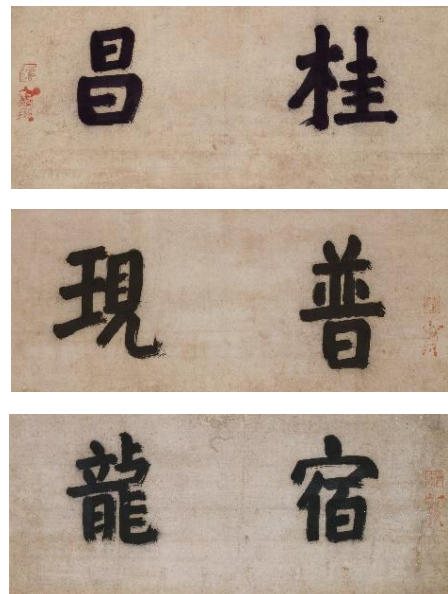 桂昌
普現
宿龍